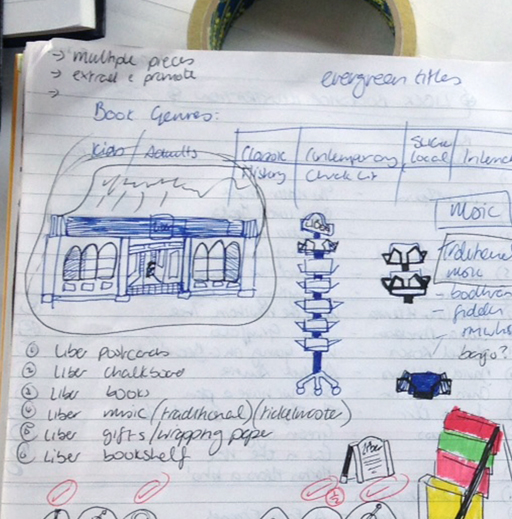 → multiple pieces
→ extract & promote
→
evergreen titles
Book Genres:
Kids / Adults
Classic
History
Contemporary
Chick Lit
Local
Music
Traditional
music
- bodhran
- fiddle
banjo?
① Liber postcards
② Liber chalkboard
③ Liber books
④ Liber music (traditional)
⑤ Liber gifts / wrapping paper
⑥ Liber bookshelf
Liber